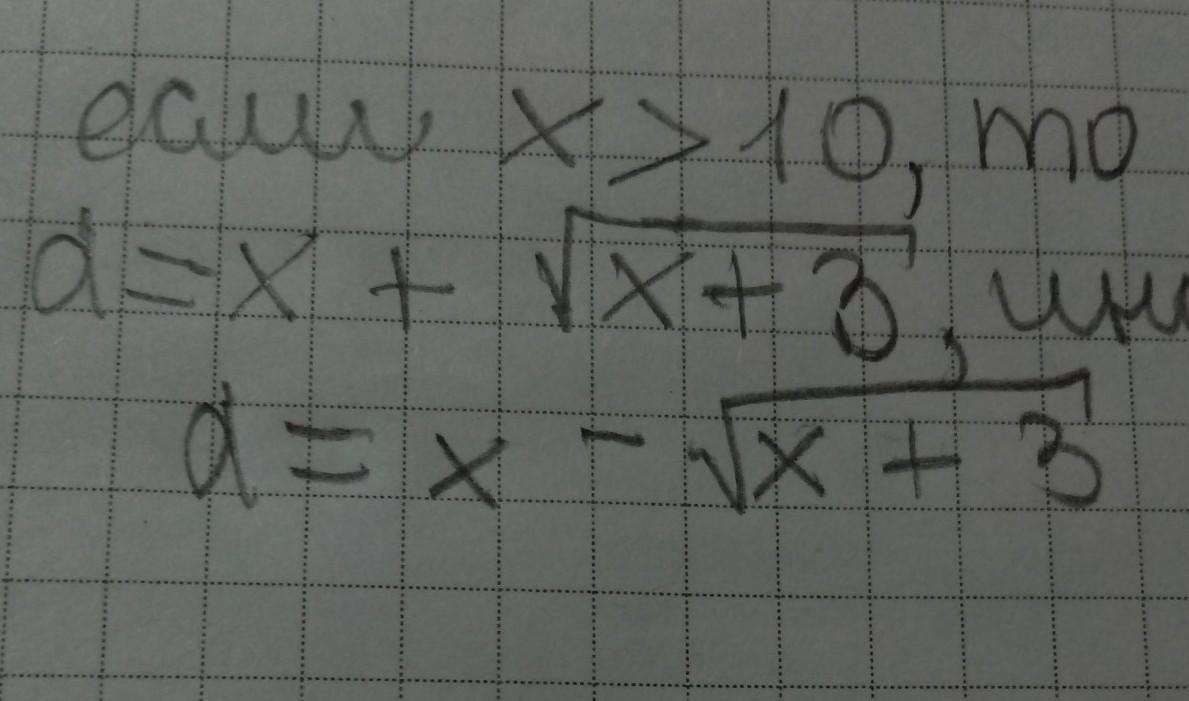 если x > 10, то
d = x + √(x + 3), ин
d = x - √(x + 3)